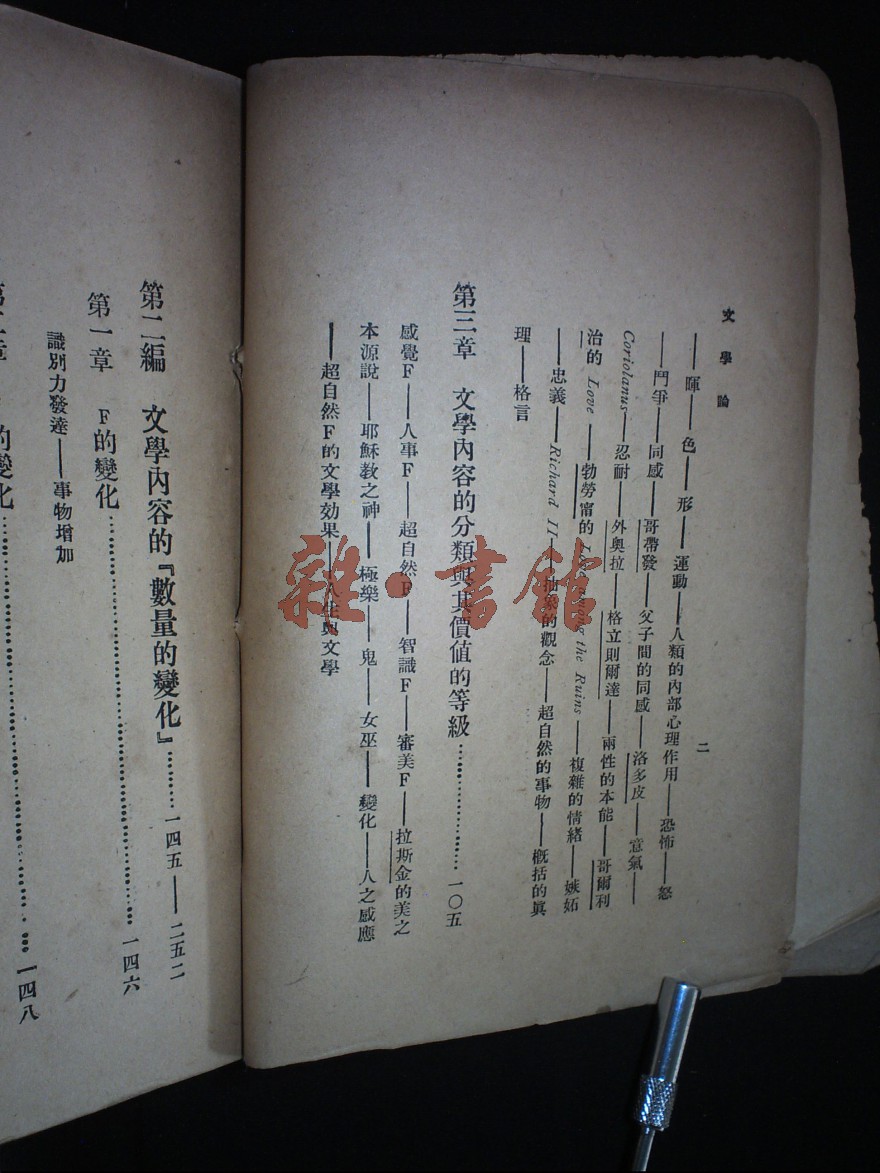 文學論
二
——暉——色——形——運動——人類的內部心理作用——恐怖——怒
——鬥爭——同感——哥帶發——父子間的同感——洛多皮——意氣——
Coriolanus——忍耐——外奧拉——格立則爾達——兩性的本能——哥爾利
治的 Love——勃勞甯的 Love among the Ruins——複雜的情緒——嫉妬
——忠義——Richard II——抽象的觀念——超自然的事物——概括的眞
理——格言
第三章 文學內容的分類與其價值的等級……………一〇五
感覺F——人事F——超自然F——智識F——審美F——拉斯金的美之
本源說——耶穌教之神——極樂——鬼——女巫——變化——人之感應
——超自然F的文學効果——人生與文學
雜·書館
第二編 文學內容的『數量的變化』…………一四五——二五二
第一章 F的變化……………………………一四六
識別力發達——事物增加
的變化……………………………一四八